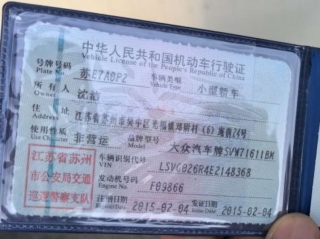 中华人民共和国机动车行驶证
Vehicle License of the People's Republic of China
号牌号码 苏E7A0PZ 车辆类型 小型轿车
Plate No.
所有人 沈
Owner
住址 江苏省苏州市吴中区光福镇 村(6) 24号
Address
使用性质 非营运 品牌型号 大众汽车牌SVW71611BM
Use Character
江苏省苏州
市公安局交通
巡逻警察支队
车辆识别代号 LSVG026R4E2148368
VIN
发动机号码 F09866
Engine No.
注册日期 2015-02-04 发证日期 2015-02-04